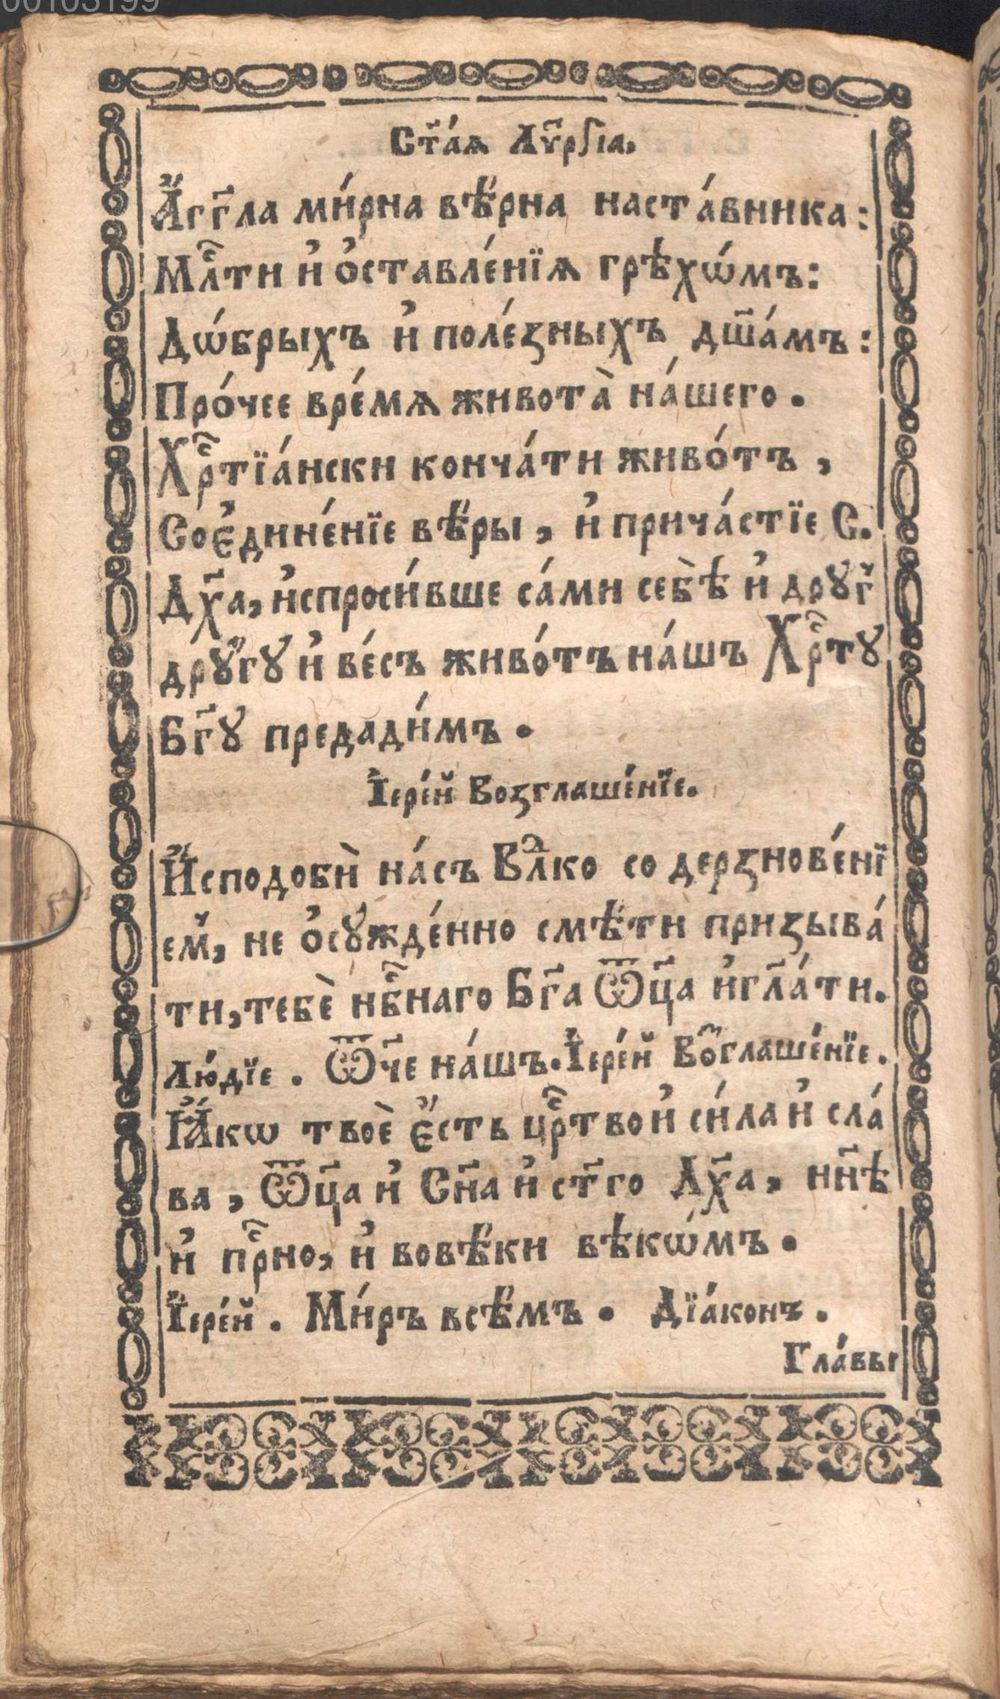 00103199
Ст҃а́ѧ Лѵ҃ргїа.
А҆́гг҃ла ми́рна вѣ́рна наста́вника:
Мл҇ти и҆ ѡ҆ставле́нїѧ грѣхѡ́мъ:
Дѡ́брыхъ и҆ поле́зныхъ дш҃а́мъ:
Про́чее вре́мѧ живота̀ на́шего.
Хр҇тїа́нски конча́ти живо́тъ,
Соє҆дине́нїе вѣ́ры, и҆ прича́стїе С.
Дх҃а, и҆спроси́вше са́ми себѣ̀ и҆ дрꙋг
дрꙋ́гꙋ и҆ ве́съ живо́тъ на́шъ Хр҇тꙋ
Бг҃ꙋ предади́мъ.
І҆ере́й Возглаше́нїе.
И҆сподоби̇̀ на́съ Влⷣко со дерзнове́нї
ем, не ѻ҆сꙋжде́нно смѣ́ти призыва́
ти, тебѐ нбⷭ҇наго Бг҃а Ѿц҃а и҆гл҃а́ти.
Лю́дїе. Ѿч҃е на́шъ. І҆ере́й Воⷥглаше́нїе.
Ꙗ҆́кѡ твоѐ є҆́сть црⷭ҇тво и҆ си́ла и҆ сла́
ва, Ѿц҃а и҆ Сн҃а и҆ ст҃го Дх҃а, нн҃ѣ
и҆ прⷭ҇но, и҆ вовѣ́ки вѣкѡ́мъ.
І҆ере́й. Ми́ръ всѣ́мъ. Дїа́конъ.
Гла́вы